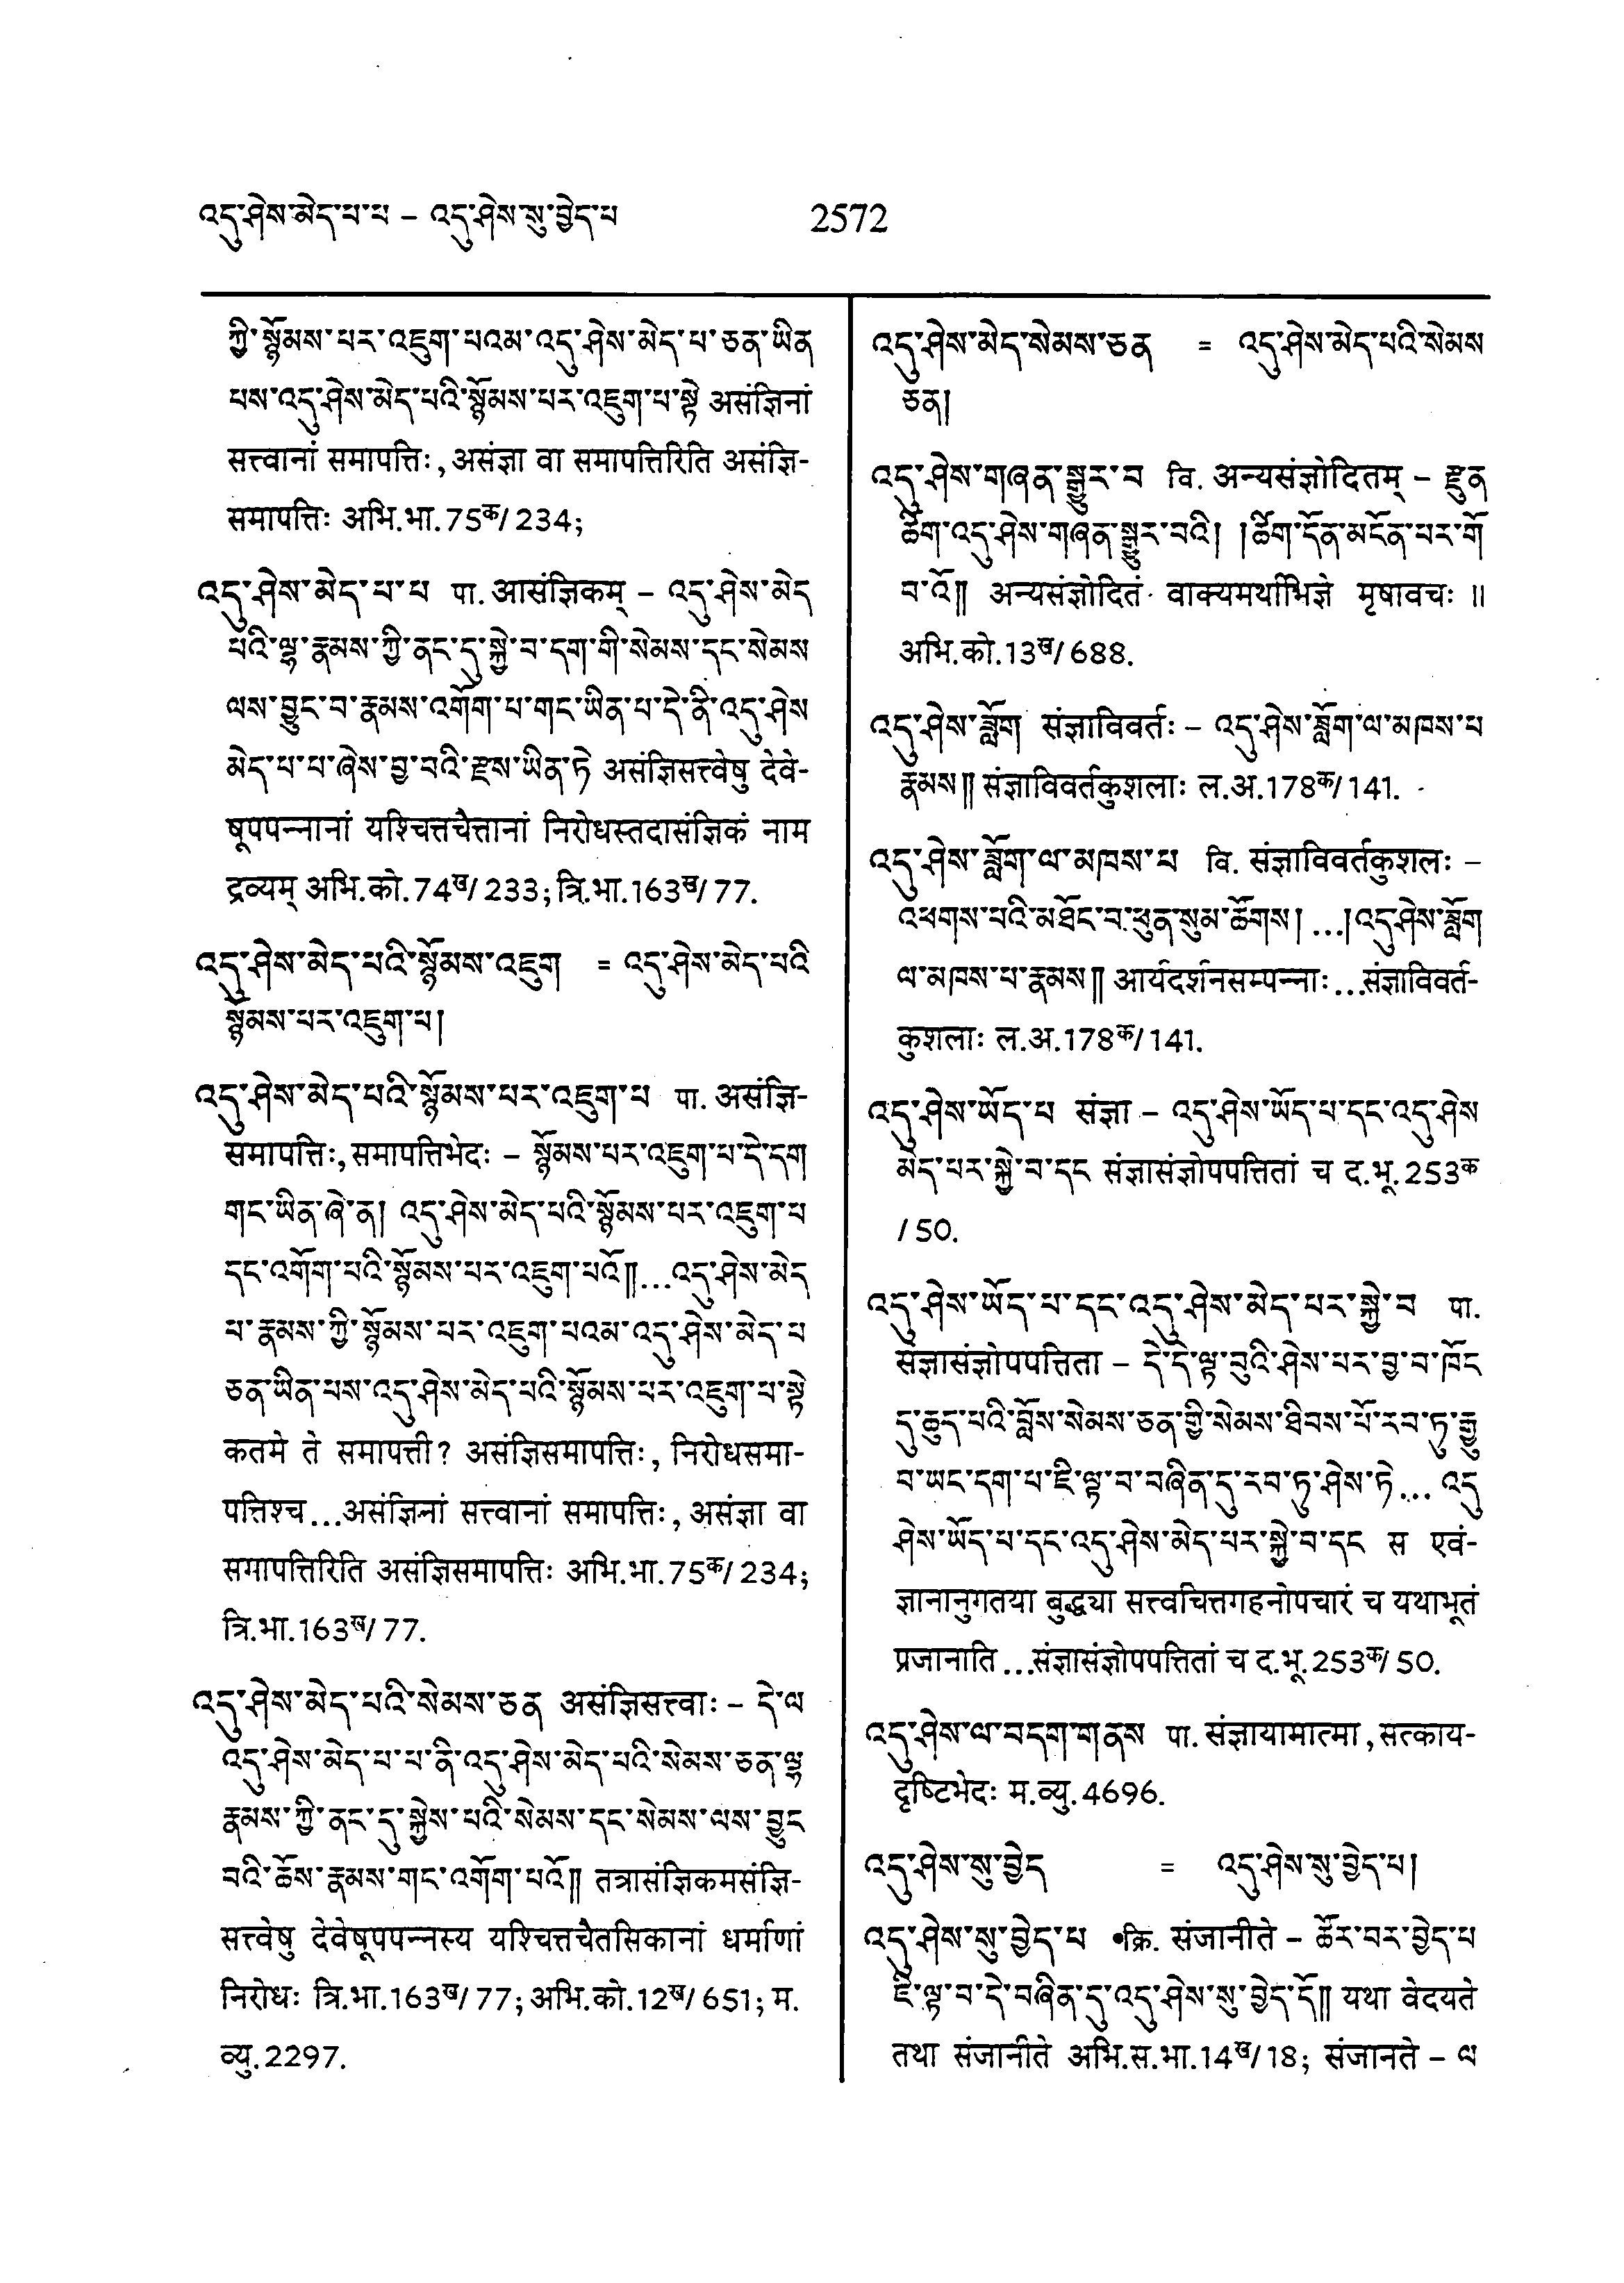 འདུ་ཤེས་མེད་པ་པ – འདུ་ཤེས་སུ་བྱེད་པ
2572
ཀྱི་སྙོམས་པར་འཇུག་པའམ་འདུ་ཤེས་མེད་པ་ཅན་ཡིན
པས་འདུ་ཤེས་མེད་པའི་སྙོམས་པར་འཇུག་པ་སྟེ असंज्ञिनां
सत्त्वानां समापत्तिः, असंज्ञा वा समापत्तिरिति असंज्ञि-
समापत्तिः अभि.भा.75क/234;
འདུ་ཤེས་མེད་པ་པ पा. आसंज्ञिकम् – འདུ་ཤེས་མེད
པའི་ལྷ་རྣམས་ཀྱི་ནང་དུ་སྐྱེ་བ་དག་གི་སེམས་དང་སེམས
ལས་བྱུང་བ་རྣམས་འགོག་པ་གང་ཡིན་པ་དེ་ནི་འདུ་ཤེས
མེད་པ་པ་ཞེས་བྱ་བའི་རྫས་ཡིན་ཏེ असंज्ञिसत्त्वेषु देवे-
षूपपन्नानां यश्चित्तचैत्तानां निरोधस्तदासंज्ञिकं नाम
द्रव्यम् अभि.को.74ख/233; त्रि.भा.163ख/77.
འདུ་ཤེས་མེད་པའི་སྙོམས་འཇུག = འདུ་ཤེས་མེད་པའི
སྙོམས་པར་འཇུག་པ།
འདུ་ཤེས་མེད་པའི་སྙོམས་པར་འཇུག་པ पा. असंज्ञि-
समापत्तिः, समापत्तिभेदः – སྙོམས་པར་འཇུག་པ་དེ་དག
གང་ཡིན་ཞེ་ན། འདུ་ཤེས་མེད་པའི་སྙོམས་པར་འཇུག་པ
དང་འགོག་པའི་སྙོམས་པར་འཇུག་པའོ༎...འདུ་ཤེས་མེད
པ་རྣམས་ཀྱི་སྙོམས་པར་འཇུག་པའམ་འདུ་ཤེས་མེད་པ
ཅན་ཡིན་པས་འདུ་ཤེས་མེད་པའི་སྙོམས་པར་འཇུག་པ་སྟེ
कतमे ते समापत्ती? असंज्ञिसमापत्तिः, निरोधसमा-
पत्तिश्च...असंज्ञिनां सत्त्वानां समापत्तिः, असंज्ञा वा
समापत्तिरिति असंज्ञिसमापत्तिः अभि.भा.75क/234;
त्रि.भा.163ख/77.
འདུ་ཤེས་མེད་པའི་སེམས་ཅན असंज्ञिसत्त्वाः – དེ་ལ
འདུ་ཤེས་མེད་པ་པ་ནི་འདུ་ཤེས་མེད་པའི་སེམས་ཅན་ལྷ
རྣམས་ཀྱི་ནང་དུ་སྐྱེས་པའི་སེམས་དང་སེམས་ལས་བྱུང
བའི་ཆོས་རྣམས་གང་འགོག་པའོ༎ तत्रासंज्ञिकमसंज्ञि-
सत्त्वेषु देवेषूपपन्नस्य यश्चित्तचैतसिकानां धर्माणां
निरोधः त्रि.भा.163ख/77; अभि.को.12ख/651; म.
व्यु.2297.
འདུ་ཤེས་མེད་སེམས་ཅན = འདུ་ཤེས་མེད་པའི་སེམས
ཅན།
འདུ་ཤེས་གཞན་སྒྱུར་བ वि. अन्यसंज्ञोदितम् – རྫུན
ཚིག་འདུ་ཤེས་གཞན་སྒྱུར་བའི། །ཚིག་དོན་མངོན་པར་གོ
བ་འོ༎ अन्यसंज्ञोदितं वाक्यमर्थाभिज्ञे मृषावचः ॥
अभि.को.13ख/688.
འདུ་ཤེས་ཟློག संज्ञाविवर्तः – འདུ་ཤེས་ཟློག་ལ་མཁས་པ
རྣམས༎ संज्ञाविवर्तकुशलाः ल.अ.178क/141.
འདུ་ཤེས་ཟློག་ལ་མཁས་པ वि. संज्ञाविवर्तकुशलः –
འཕགས་པའི་མཐོང་བ་ཕུན་སུམ་ཚོགས། ...།འདུ་ཤེས་ཟློག
ལ་མཁས་པ་རྣམས༎ आर्यदर्शनसम्पन्नाः...संज्ञाविवर्त-
कुशलाः ल.अ.178क/141.
འདུ་ཤེས་ཡོད་པ संज्ञा – འདུ་ཤེས་ཡོད་པ་དང་འདུ་ཤེས
མེད་པར་སྐྱེ་བ་དང संज्ञासंज्ञोपपत्तितां च द.भू.253क
/50.
འདུ་ཤེས་ཡོད་པ་དང་འདུ་ཤེས་མེད་པར་སྐྱེ་བ पा.
संज्ञासंज्ञोपपत्तिता – དེ་དེ་ལྟ་བུའི་ཤེས་པར་བྱ་བ་ཁོང
དུ་ཆུད་པའི་བློས་སེམས་ཅན་གྱི་སེམས་ཐིབས་པོ་རབ་ཏུ་རྒྱུ
བ་ཡང་དག་པ་ཇི་ལྟ་བ་བཞིན་དུ་རབ་ཏུ་ཤེས་ཏེ... འདུ
ཤེས་ཡོད་པ་དང་འདུ་ཤེས་མེད་པར་སྐྱེ་བ་དང स एवं-
ज्ञानानुगतया बुद्ध्या सत्त्वचित्तगहनोपचारं च यथाभूतं
प्रजानाति...संज्ञासंज्ञोपपत्तितां च द.भू.253क/50.
འདུ་ཤེས་ལ་བདག་གནས पा. संज्ञायामात्मा, सत्काय-
दृष्टिभेदः म.व्यु.4696.
འདུ་ཤེས་སུ་བྱེད = འདུ་ཤེས་སུ་བྱེད་པ།
འདུ་ཤེས་སུ་བྱེད་པ •क्रि. संजानीते – ཚོར་བར་བྱེད་པ
ཇི་ལྟ་བ་དེ་བཞིན་དུ་འདུ་ཤེས་སུ་བྱེད་དོ༎ यथा वेदयते
तथा संजानीते अभि.स.भा.14ख/18; संजानते – ལ